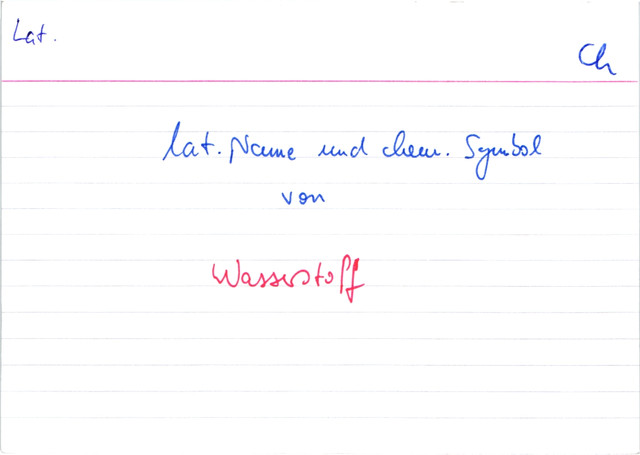 Lat.
Ch
lat. Name und chem. Symbol
von
Wasserstoff